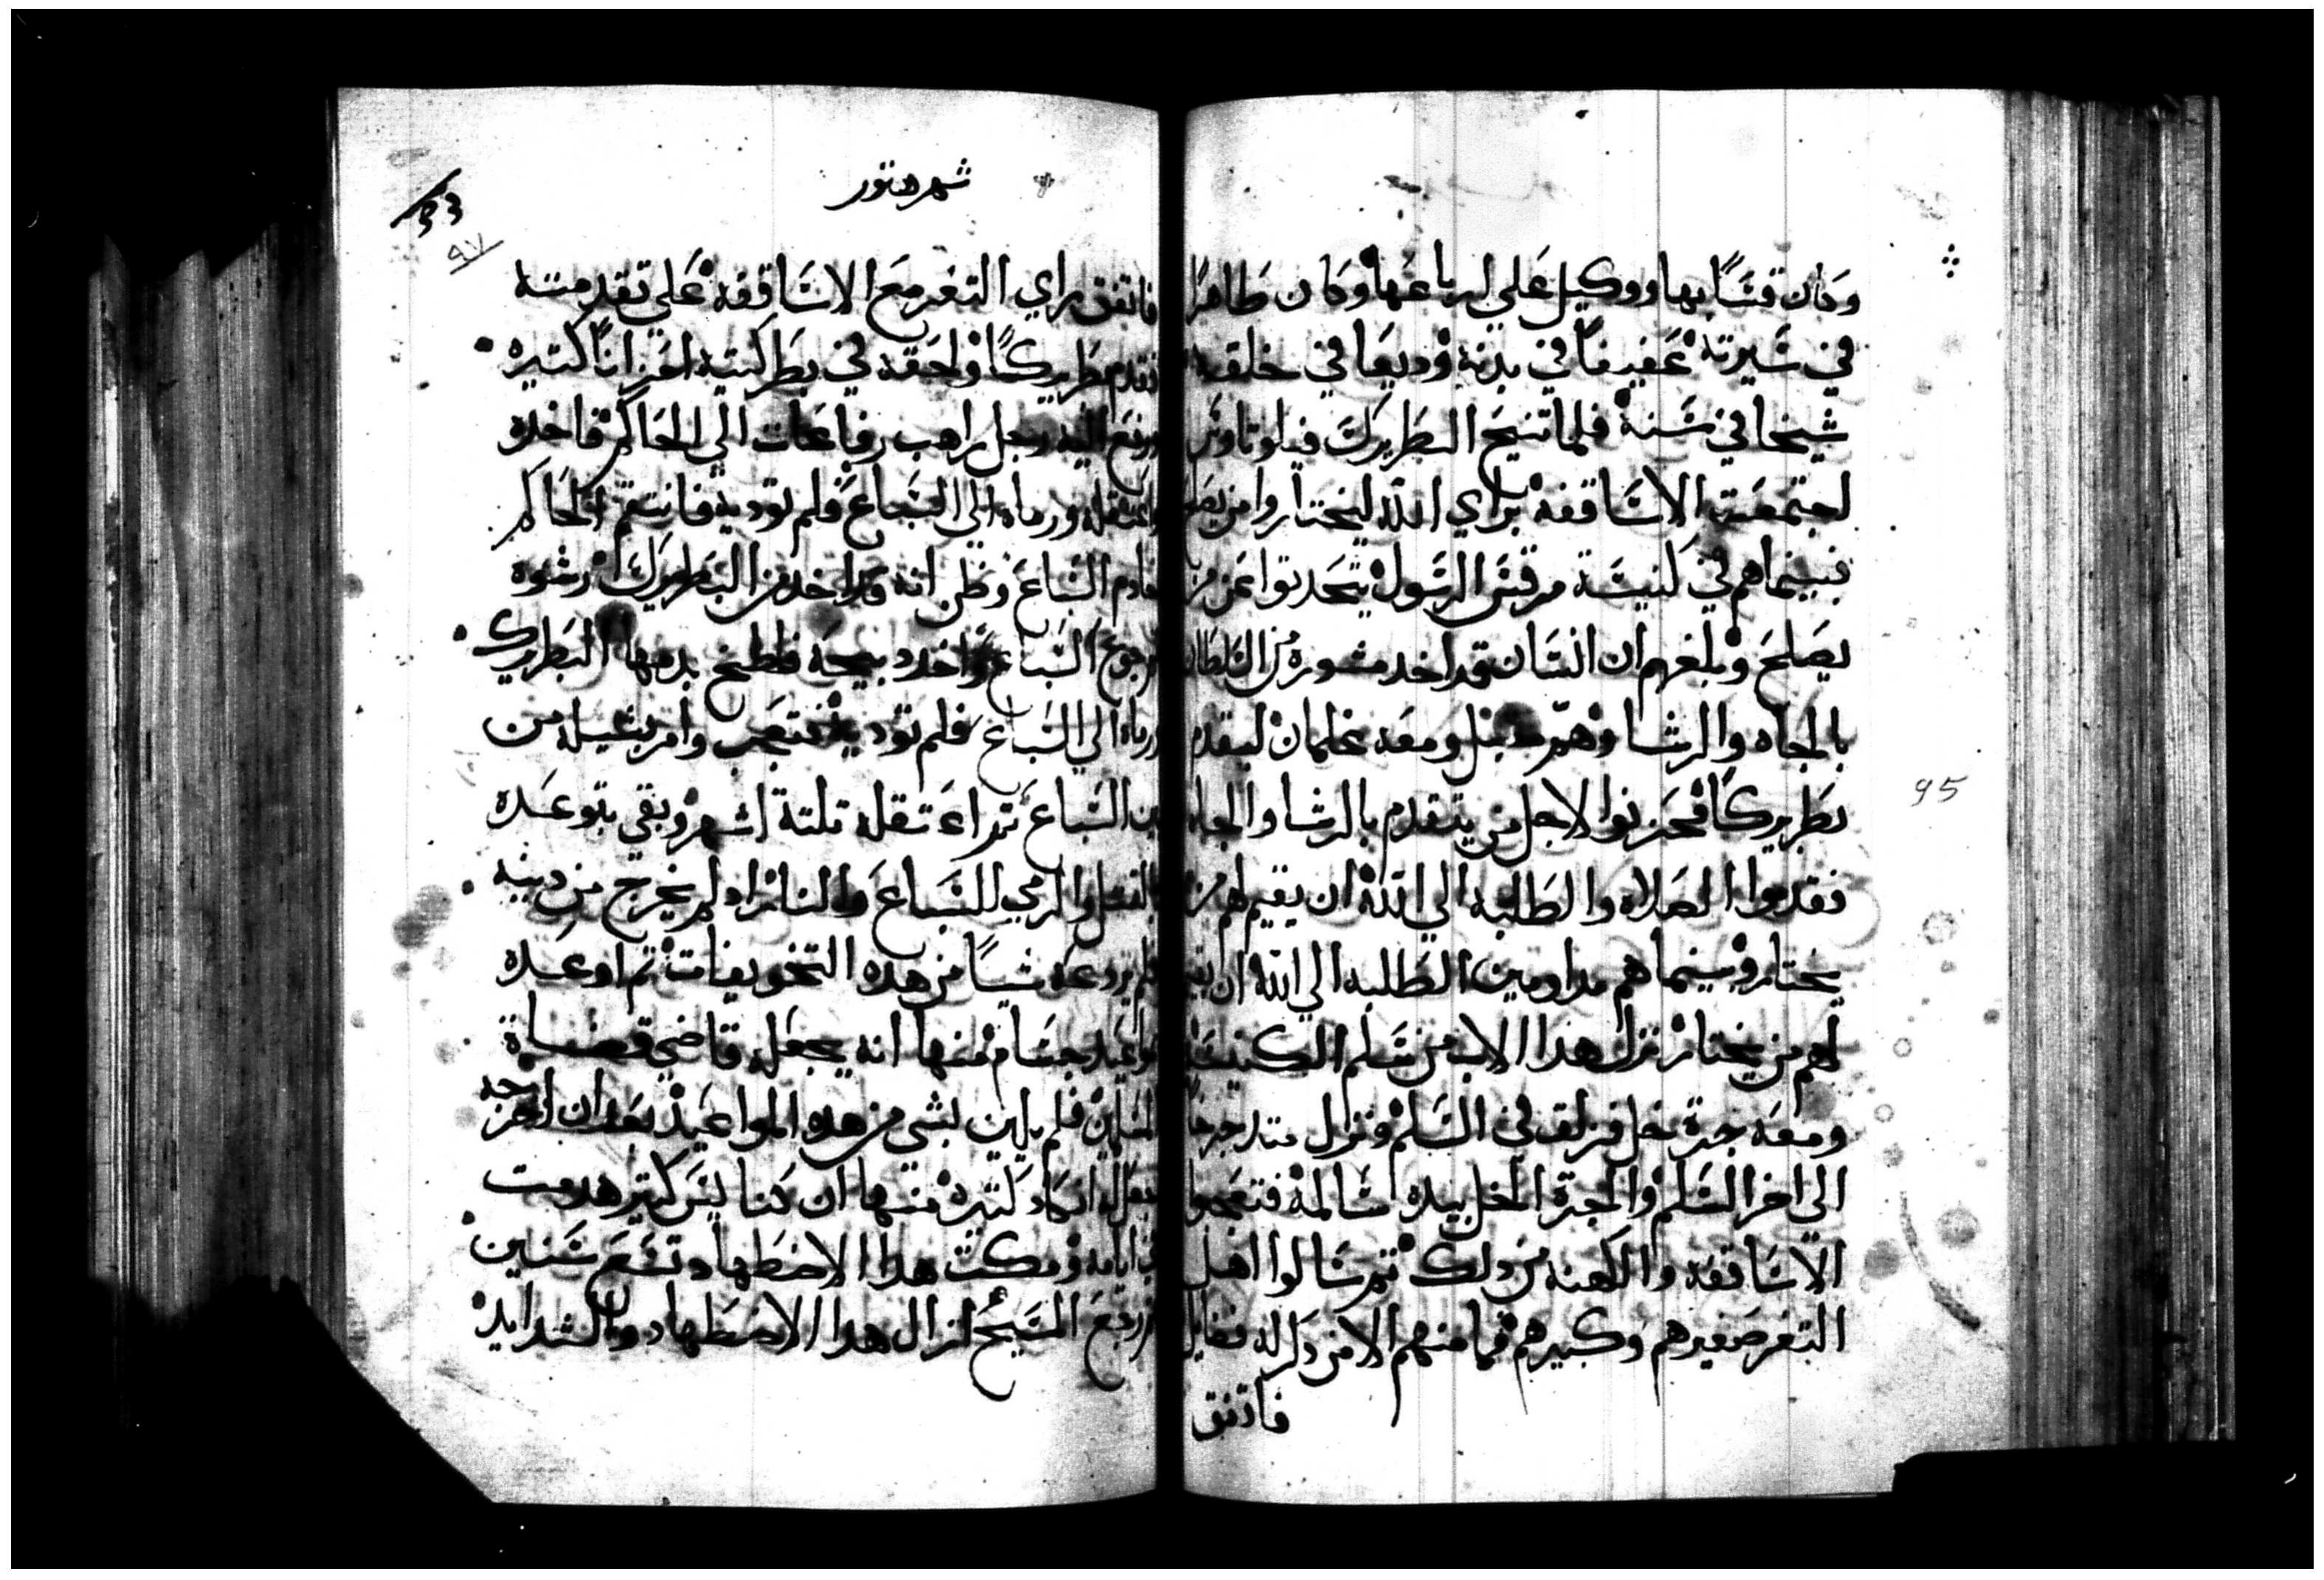 وكان قسًا بها ووكيل علي ارباعها وكان طاهرًا
في سيرته عفيفًا في بدنه وديعا في خلقه
شيخا في سنه فلما تنيح البطريرك فيلوتاوس
اجتمعت الاساقفه براي الله ليختاروا من يصلح
فبينما هم في كنيسة مرقس الرسول يتحدتوا عن من
يصلح وبلغهم ان انسان قد اخد مشوره من السلطان
بالجاه والرشا وهو مقبل ومعه غلمان ليقدم
بطريركًا فحزنوا لاجل من يتقدم بالرشا والجاه
فقدموا الصلاه والطلبه الي الله ان يقيم لهم من
يختار وبينما هم مداومين الطلبه الي الله ان يقيم
لهم من يختار نزل هدا الاب من سلم الكنيسه
ومعه جرة خل فزلق في السلم ونزل متدحرجًا
الي اخر السلم والجرة الخل بيده سالمه فتعجبوا
الاساقفه والكهنه من دلك تم سالوا اهل
التغر صغيرهم وكبيرهم فما منهم الا من دكر له فضايل
فاتفق
95
شهر هتور
93
٩٧
فاتفق راي التغر مع الاساقفه على تقدمته
فقدم بطريركًا ولحقه في بطركيته احزانًا كتيره
ورفع اليه رجل راهب رفاعات الي الحاكم فاخده
واعتقله ورماه الي السباع فلم توديه فانتقم الحاكم
خادم السباع وظن انه قد اخد من البطريرك رشوه
فجوع السباع واخد دبيحه فلطخ بدمها البطريرك
ورماه الي السباع فلم توديه فتعجب وامر بشيله من
بين السباع تم اعتقله تلتة اشهر وبقي يتوعده
بالقتل والرمي للسباع والنار ان لم يخرج من دينه
فلم يردعه شيًا من هده التخويفات تم اوعده
مواعيد جسام منها انه يجعله قاضي قضاة
المسلمين فلم يلين بشي من هده المواعيد بعد ان اخرجه
فعل له انكاد كتيره منها ان كنايس كتير هدمت
في ايامه ومكت هدا الاضطهاد تسع سنين
تم رجع المسيح ازال هدا الاضطهاد والشدايد